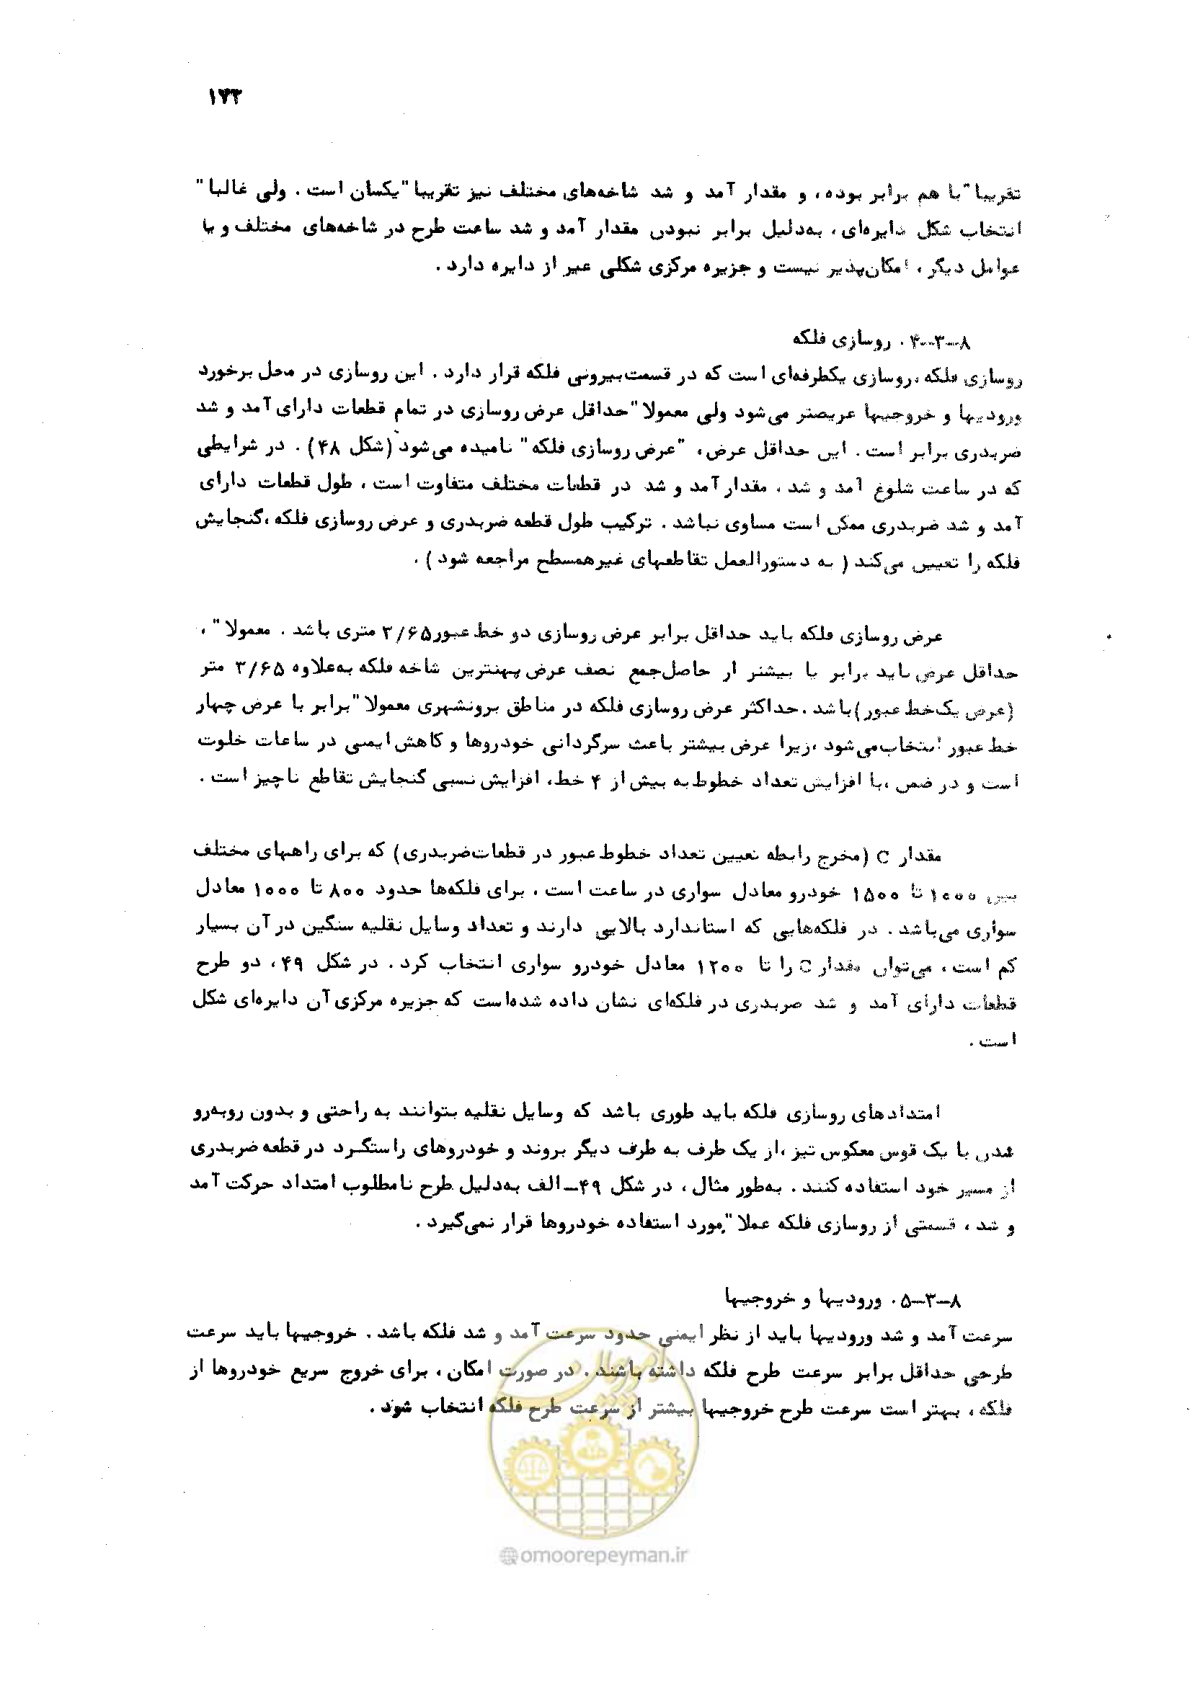 ۱۲۳
تقریبا" با هم برابر بوده، و مقدار آمد و شد شاخه‌های مختلف نیز تقریبا" یکسان است. ولی غالبا"
انتخاب شکل دایره‌ای، به‌دلیل برابر نبودن مقدار آمد و شد ساعت طرح در شاخه‌های مختلف و یا
عوامل دیگر، امکان‌پذیر نیست و جزیره مرکزی شکلی غیر از دایره دارد.
۸-۳-۴. روسازی فلکه
روسازی فلکه، روسازی یکطرفه‌ای است که در قسمت بیرونی فلکه قرار دارد. این روسازی در محل برخورد
ورودیها و خروجیها عریضتر می‌شود ولی معمولا" حداقل عرض روسازی در تمام قطعات دارای آمد و شد
ضربدری برابر است. این حداقل عرض، "عرض روسازی فلکه" نامیده می‌شود (شکل ۴۸). در شرایطی
که در ساعت شلوغ آمد و شد، مقدار آمد و شد در قطعات مختلف متفاوت است، طول قطعات دارای
آمد و شد ضربدری ممکن است مساوی نباشد. ترکیب طول قطعه ضربدری و عرض روسازی فلکه، گنجایش
فلکه را تعیین می‌کند (به دستورالعمل تقاطعهای غیرهمسطح مراجعه شود).
عرض روسازی فلکه باید حداقل برابر عرض روسازی دو خط عبور ۳/۶۵ متری باشد. معمولا"،
حداقل عرض باید برابر یا بیشتر از حاصل‌جمع نصف عرض پهنترین شاخه فلکه به‌علاوه ۳/۶۵ متر
(عرض یک‌خط عبور) باشد. حداکثر عرض روسازی فلکه در مناطق برونشهری معمولا" برابر با عرض چهار
خط عبور انتخاب می‌شود، زیرا عرض بیشتر باعث سرگردانی خودروها و کاهش ایمنی در ساعات خلوت
است و در ضمن، با افزایش تعداد خطوط به بیش از ۴ خط، افزایش نسبی گنجایش تقاطع ناچیز است.
مقدار C (مخرج رابطه تعیین تعداد خطوط عبور در قطعات ضربدری) که برای راههای مختلف
بین ۱۰۰۰ تا ۱۵۰۰ خودرو معادل سواری در ساعت است، برای فلکه‌ها حدود ۸۰۰ تا ۱۰۰۰ معادل
سواری می‌باشد. در فلکه‌هایی که استاندارد بالایی دارند و تعداد وسایل نقلیه سنگین در آن بسیار
کم است، می‌توان مقدار C را تا ۱۲۰۰ معادل خودرو سواری انتخاب کرد. در شکل ۴۹، دو طرح
قطعات دارای آمد و شد ضربدری در فلکه‌ای نشان داده شده‌است که جزیره مرکزی آن دایره‌ای شکل
است.
امتدادهای روسازی فلکه باید طوری باشد که وسایل نقلیه بتوانند به راحتی و بدون روبه‌رو
شدن با یک قوس معکوس تیز، از یک طرف به طرف دیگر بروند و خودروهای راستگرد در قطعه ضربدری
از مسیر خود استفاده کنند. به‌طور مثال، در شکل ۴۹-الف به‌دلیل طرح نامطلوب امتداد حرکت آمد
و شد، قسمتی از روسازی فلکه عملا" مورد استفاده خودروها قرار نمی‌گیرد.
۸-۳-۵. ورودیها و خروجیها
سرعت آمد و شد ورودیها باید از نظر ایمنی حدود سرعت آمد و شد فلکه باشد. خروجیها باید سرعت
طرحی حداقل برابر سرعت طرح فلکه داشته باشند. در صورت امکان، برای خروج سریع خودروها از
فلکه، بهتر است سرعت طرح خروجیها بیشتر از سرعت طرح فلکه انتخاب شود.
@omoorepeyman.ir